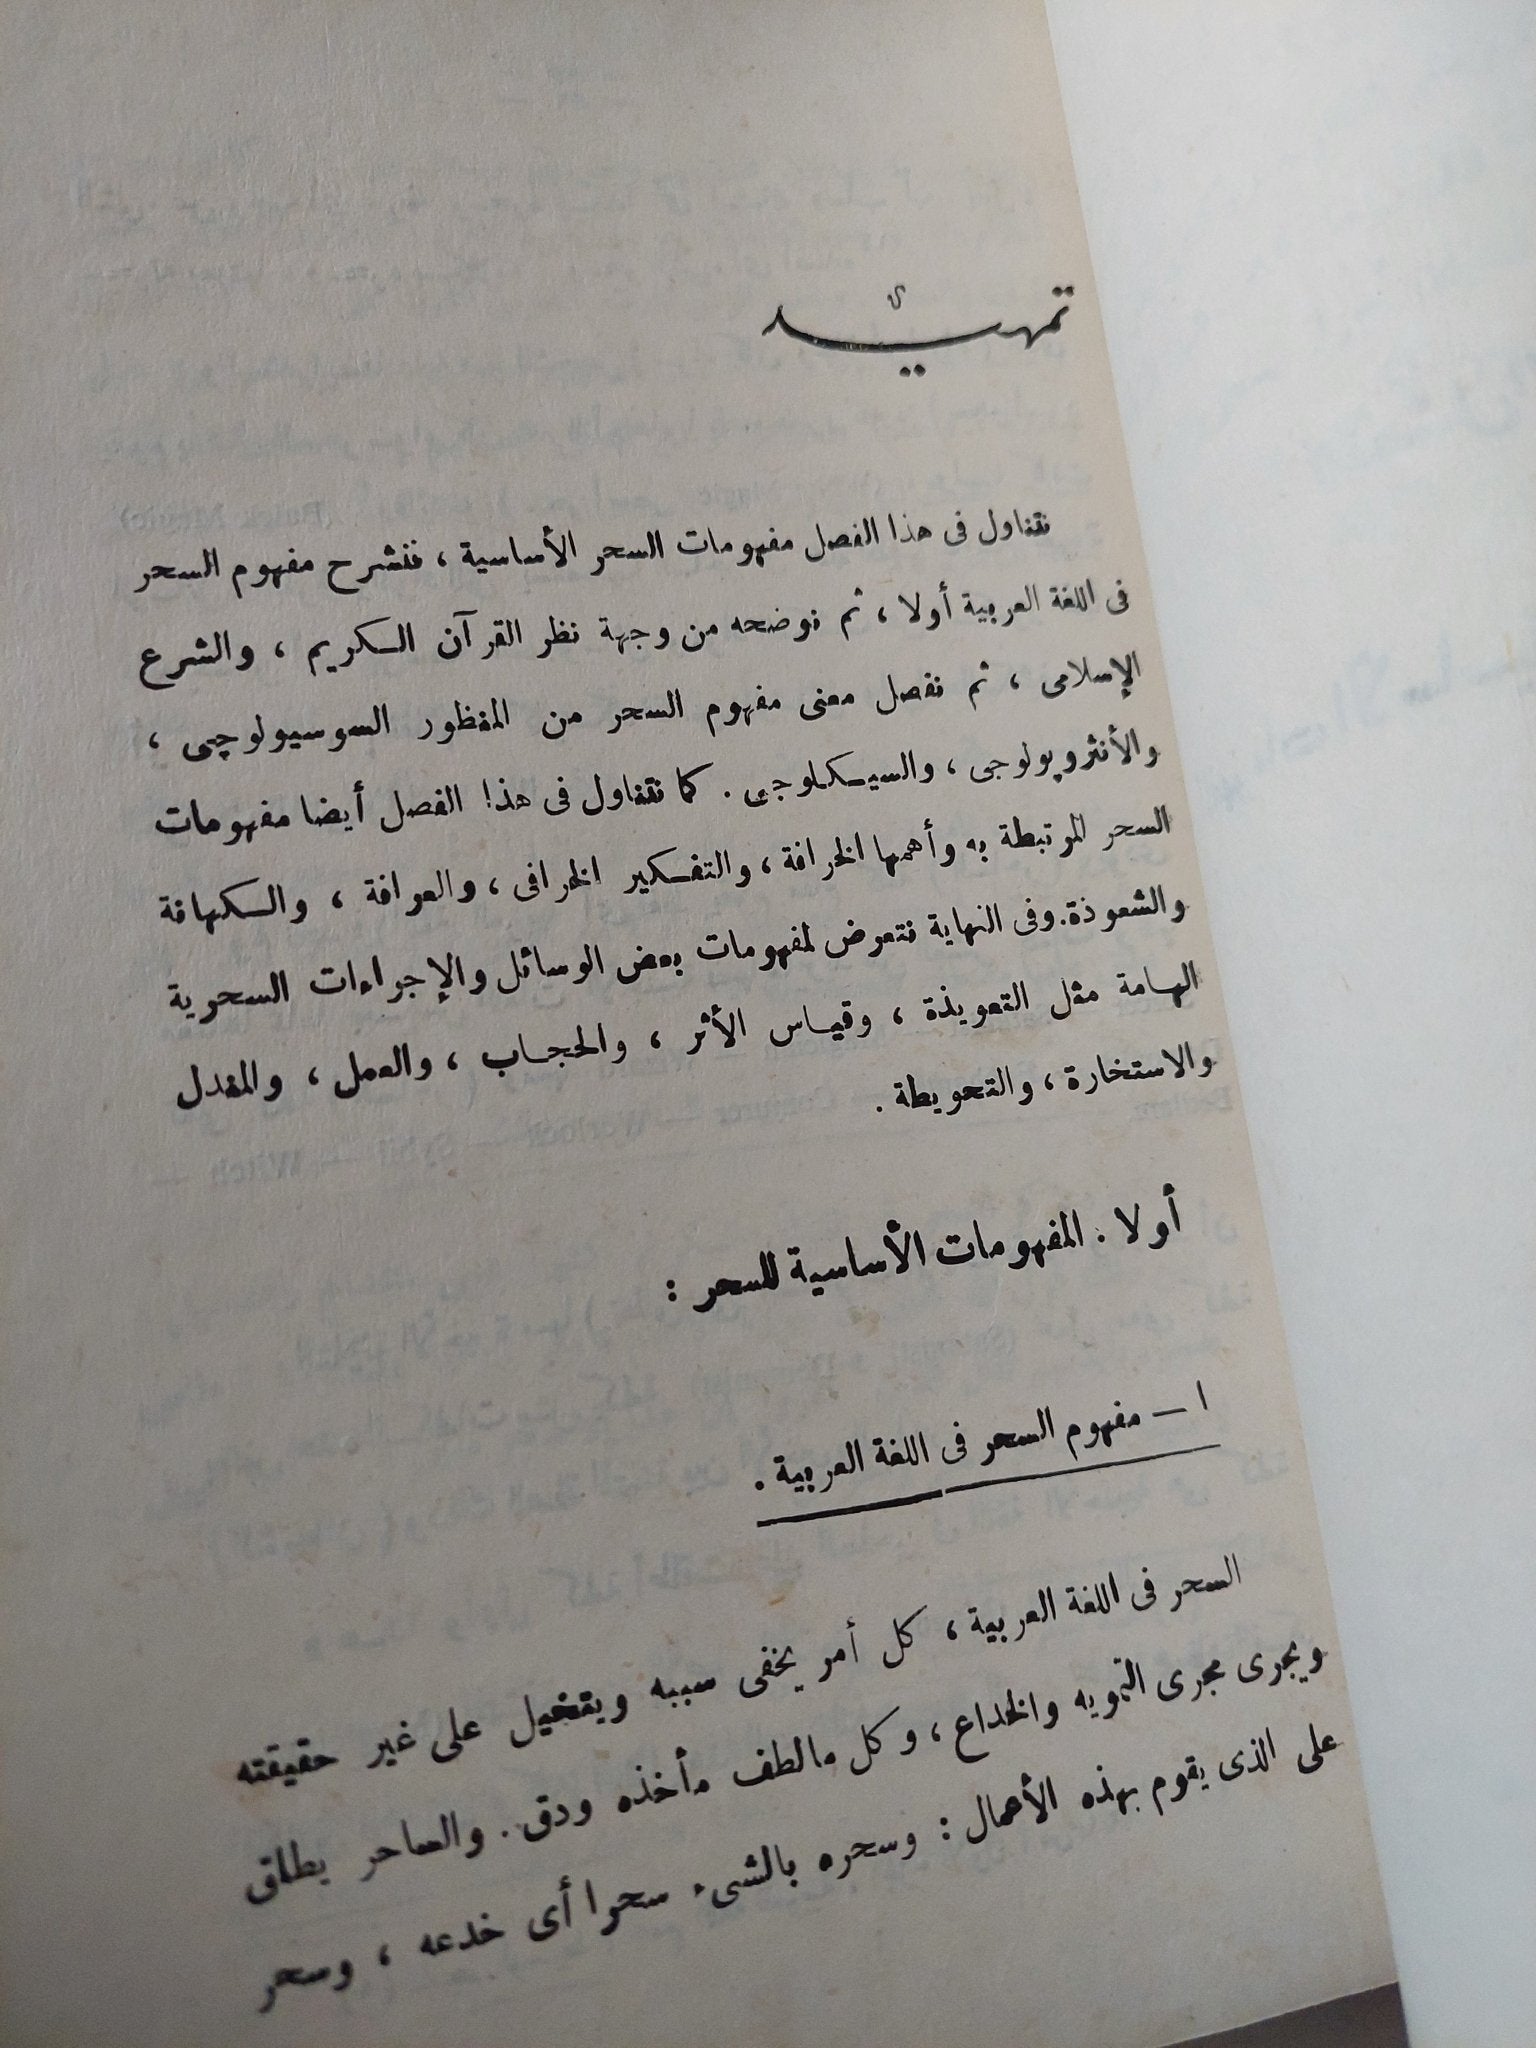 تمهيد
نتناول فى هذا الفصل مفهومات السحر الأساسية ، فنشرح مفهوم السحر
فى اللغة العربية أولا ، ثم نوضحه من وجهة نظر القرآن الكريم ، والشرع
الإسلامى ، ثم نفصل معنى مفهوم السحر من المنظور السوسيولوچى ،
والأنثروپولوجى ، والسيكلوجى . كما نتناول فى هذا الفصل أيضا مفهومات
السحر المرتبطة به وأهمها الخرافة ، والتفكير الخرافى ، والعرافة ، والكهانة
والشعوذة . وفى النهاية نتعرض لمفهومات بعض الوسائل والإجراءات السحرية
الهامة مثل التعويذة ، وقياس الأثر ، والحجاب ، والعمل ، والمندل
والاستخارة ، والتحويطة .
أولا . المفهومات الأساسية للسحر :
١ — مفهوم السحر فى اللغة العربية .
السحر فى اللغة العربية ، كل أمر يخفى سببه ويتخيل على غير حقيقته
ويجرى مجرى التمويه والخداع ، وكل مالطف مأخذه ودق . والساحر يطلق
على الذى يقوم بهذه الأعمال : وسحره بالشىء سحرا أى خدعه ، وسحر